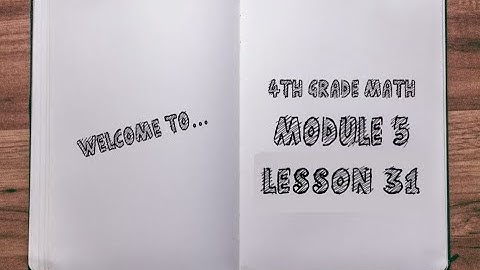 WELCOME TO...
4TH GRADE MATH
MODULE 5
LESSON 31